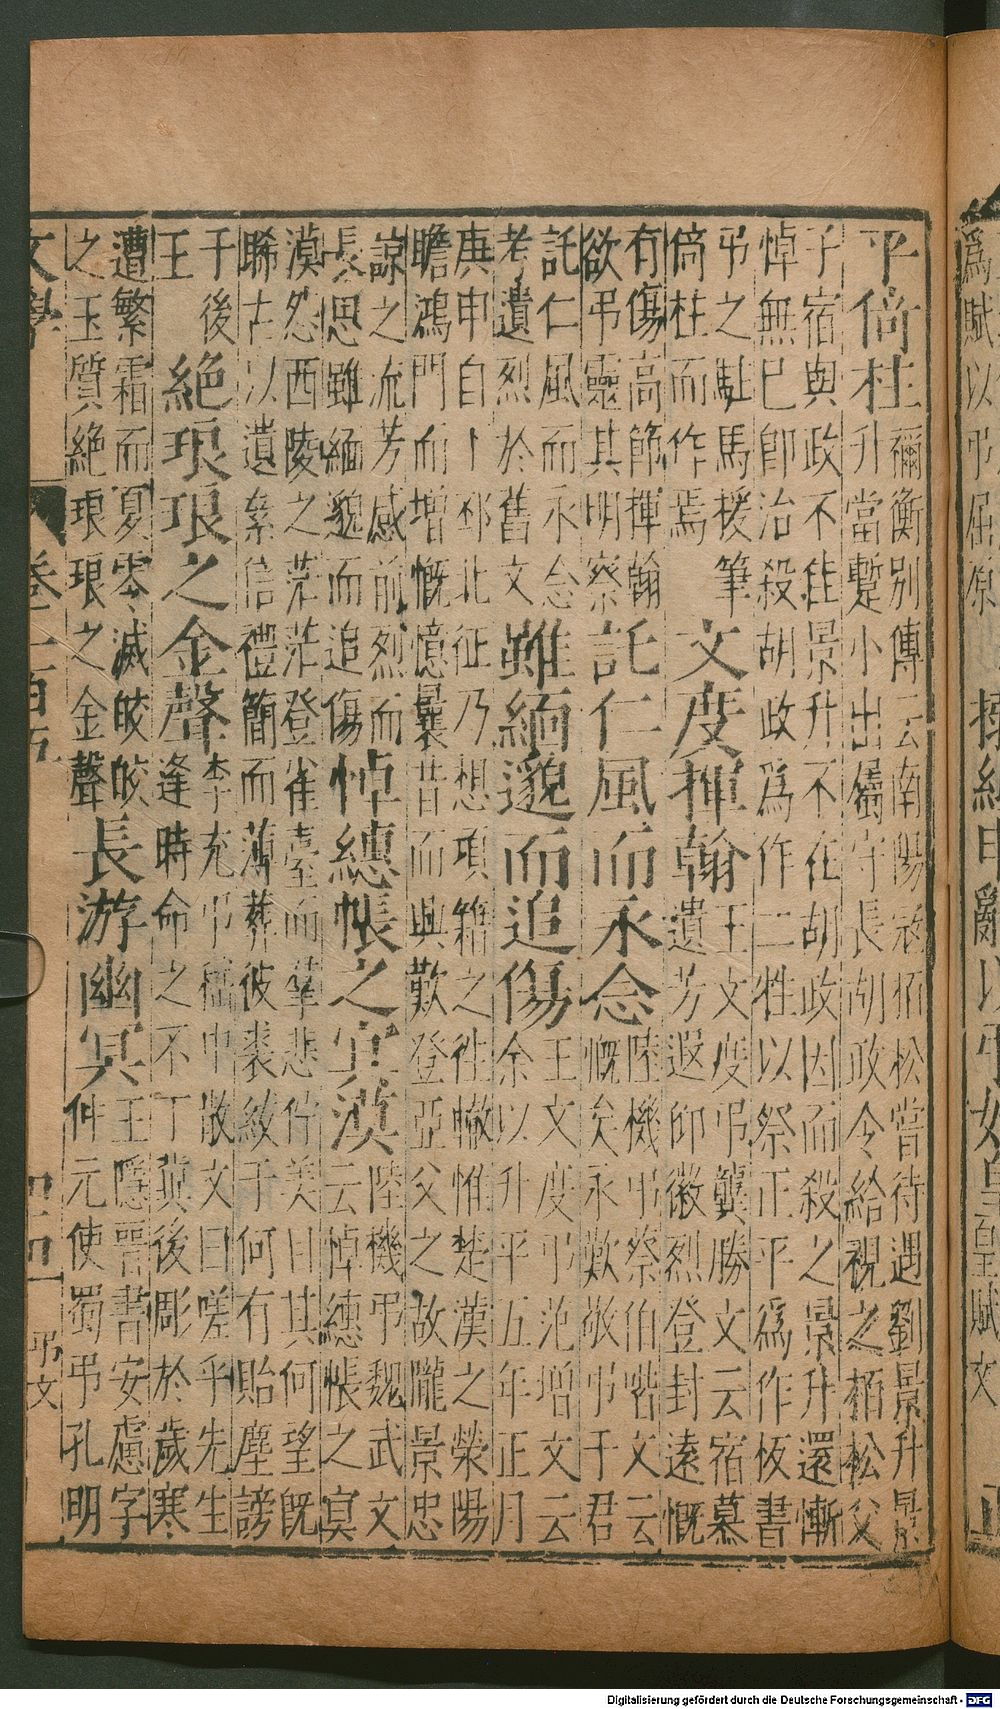 爲賦以弔屈原
平倚柱
禰衡別傳云南陽寇栢松嘗待遇劉景升景
升當蹔小出屬守長胡政令給視之栢松父
子宿與政不佳景升不在胡政因而殺之景升還慚
悼無已即治殺胡政爲作二牲以祭正平爲作板書
弔之駐馬援筆
倚柱而作焉
文度揮翰
王文度弔龔勝文云宿慕
遺芳遐仰徽烈登封遠慨
有傷高節揮翰
欲弔靈其明察
託仁風而永念
陸機弔蔡伯喈文云
慨矣永歎敬弔于君
託仁風而永念
考遺烈於舊文
雖緬邈而追傷
王文度弔范增文云
余以升平五年正月
庚申自卜邳北征乃想項籍之往轍惟楚漢之滎陽
瞻鴻門而增慨憶曩昔而興歎登亞父之故隴景忠
諒之流芳感前烈而
長思雖緬邈而追傷
悼繐帳之冥漠
陸機弔魏武文
云悼繐帳之冥
漠怨西陵之茫茫登雀臺而羣悲佇美目其何望旣
睎古以遺累信禮簡而薄葬彼裘紱于何有貽塵謗
于後
王
絶琅琅之金聲
李充弔嵇中散文曰嗟乎先生
逢時命之不丁冀後彫於歲寒
遭繁霜而夏零滅皎皎
之玉質絶琅琅之金聲
長游幽冥
王隱晉書安慮字
仲元使蜀弔孔明
文學 弔文
Digitalisierung gefördert durch die Deutsche Forschungsgemeinschaft - DFG